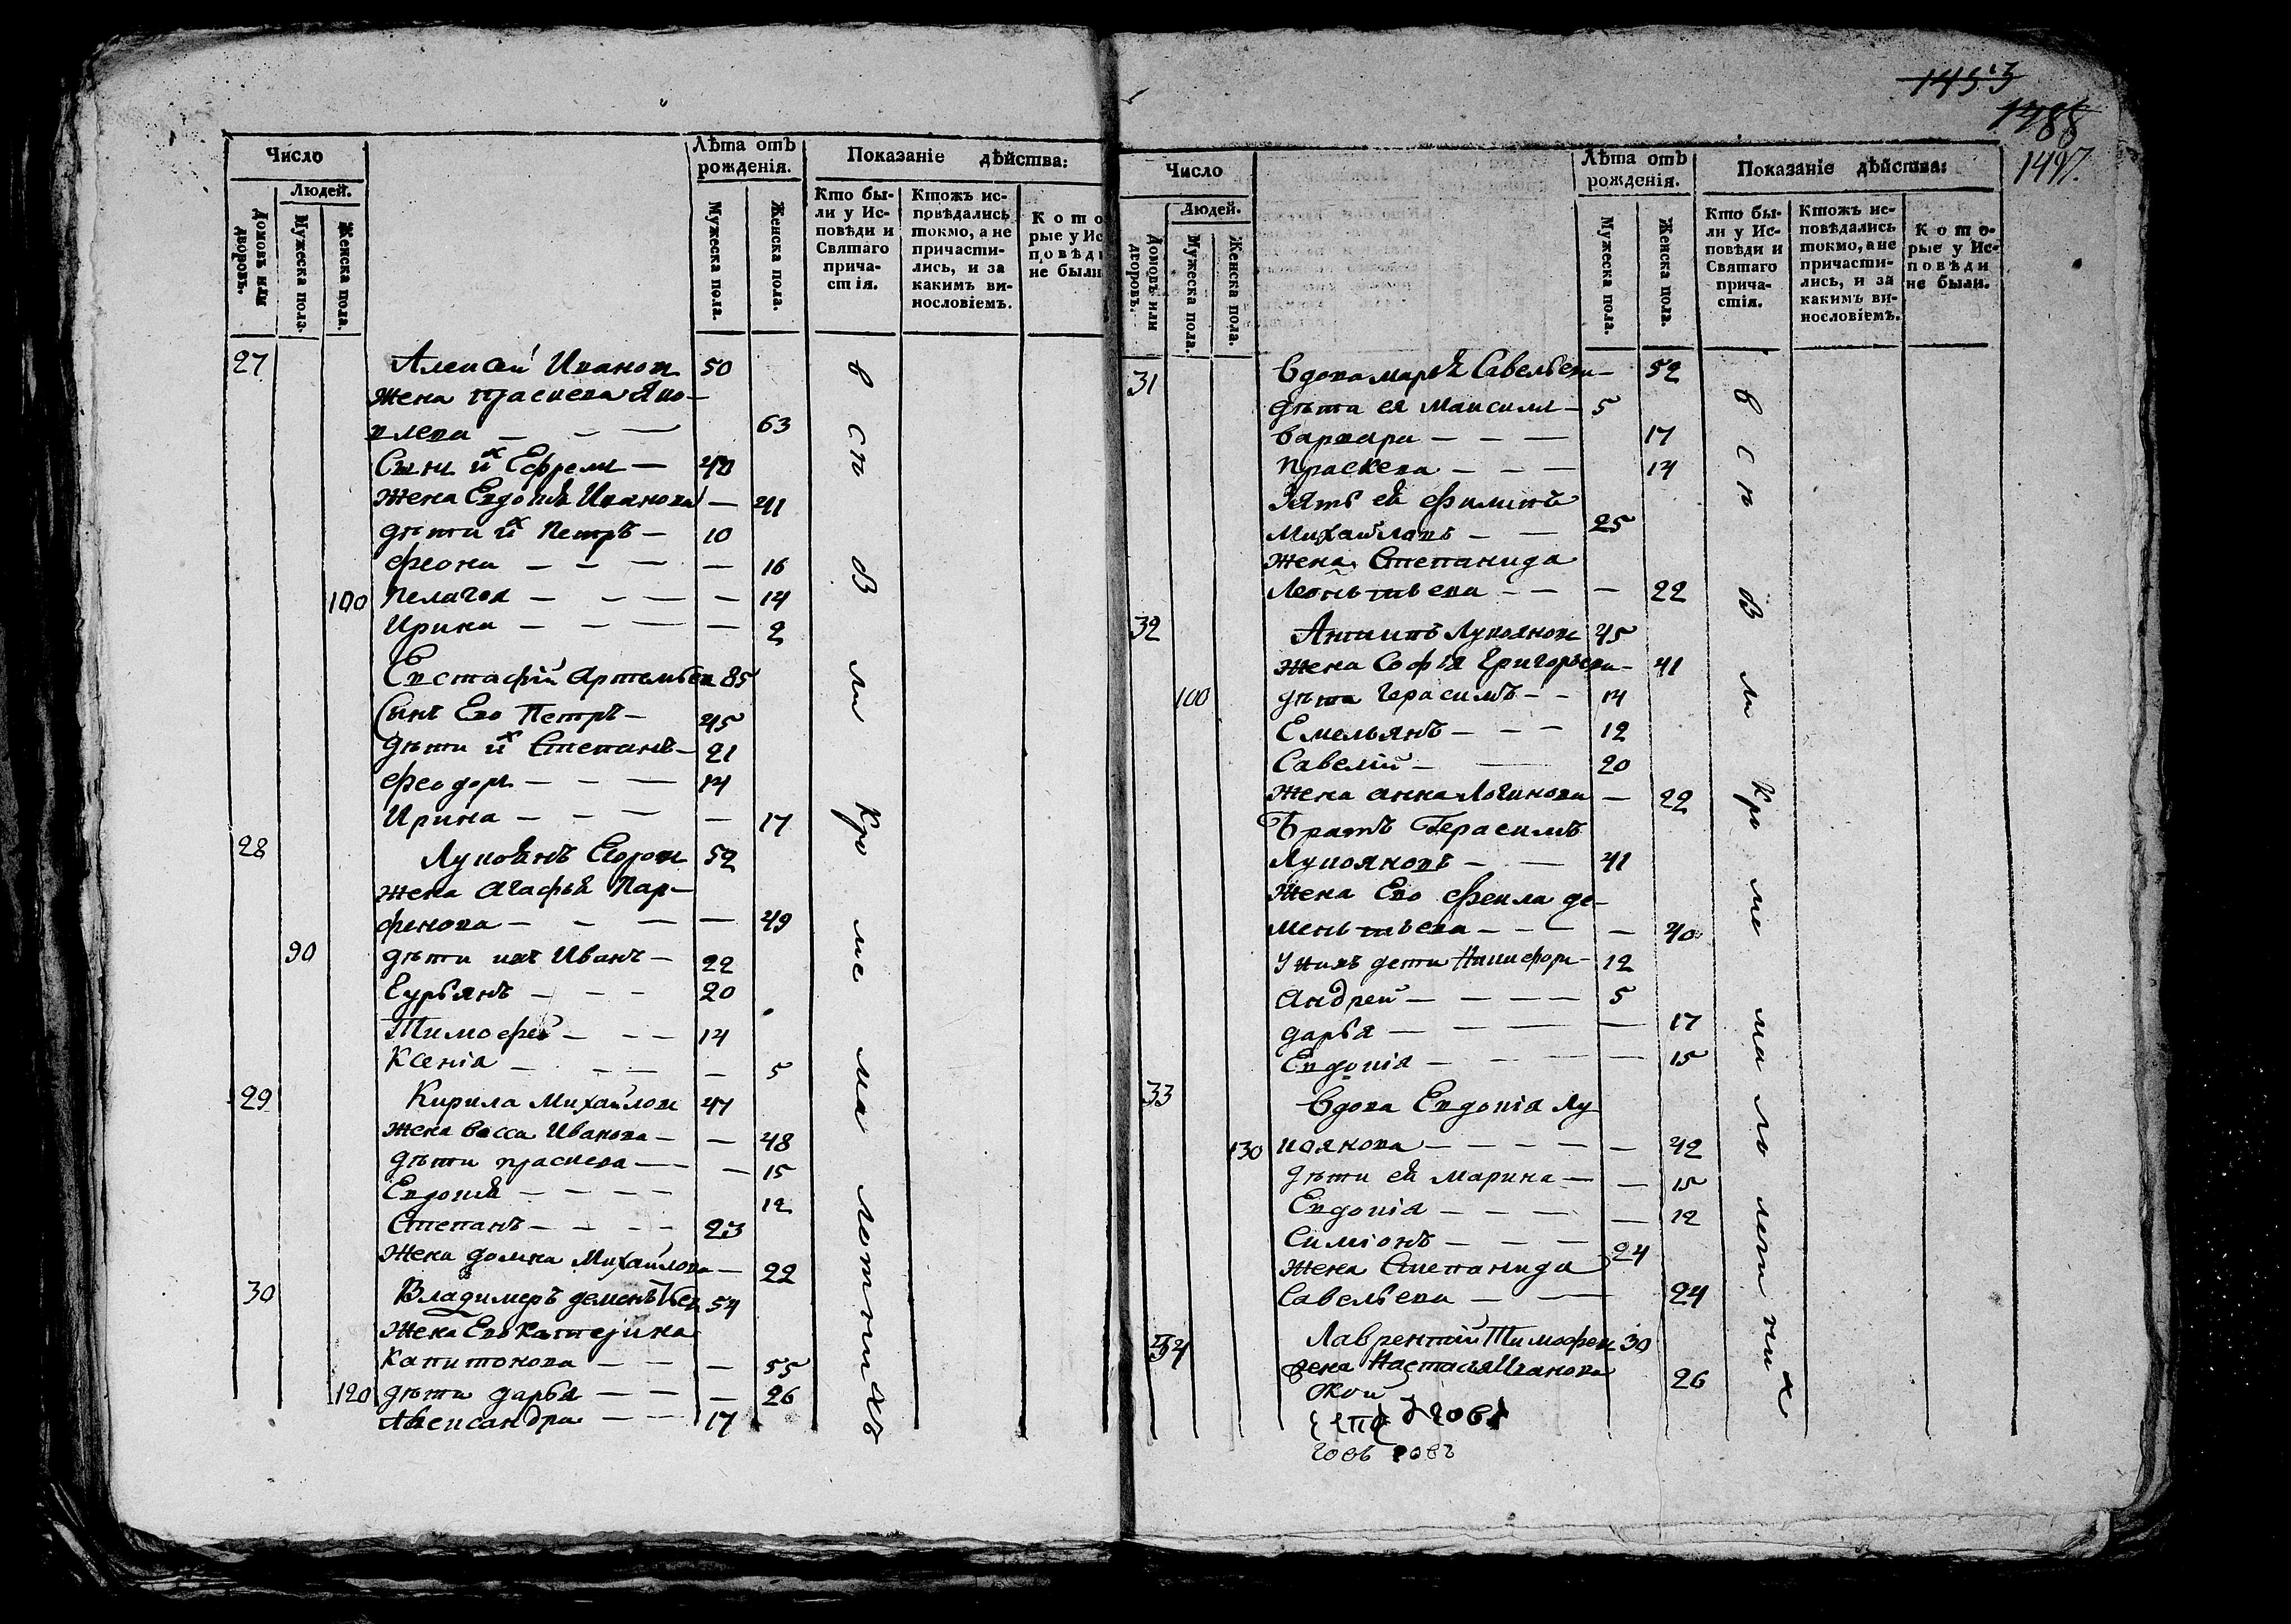 Число
Людей.
Домовъ или дворовъ.
Мужеска пола.
Женска пола.
Лѣта отъ рожденія.
Мужеска пола.
Женска пола.
Показаніе дѣйства:
Кто бы-
ли у Ис-
повѣди и
Святаго
прича-
стія.
Ктожъ ис-
повѣдались
токмо, а не
причасти-
лись, и за
какимъ ви-
нословіемъ.
Кото
рые у Ис
повѣд
не были
27 Алексѣй Иванов 50
жена праскева Яко-
влева — — — 63
Сын их Ефрем — 40
жена Евдокія Иванова — 41
дѣти их Петръ — 10
феона — — — — 16
100 Пелагея — — — — 14
Ирина — — — — 2
Евстафій Артемьев 85
Сынъ Ево Петръ — 45
дѣти их Степанъ — 21
феодоръ — — — 14
Ирина — — — — 17
28 Лукоянъ Егоров 52
жена агафья Пар-
фенова — — — — 49
90 дѣти ихъ Иванъ — 22
Гурьянъ — — — 20
Тимофей — — — 14
Ксенія — — — — 5
29 Кирила Михайлов 47
жена васса Иванова — — 48
дѣти праскева — — — 15
Евдокія — — — — 12
Степанъ — — — — 23
Жена домна Михайлова — 22
30 Владимеръ деменьтьев 54
жена Ево катерина
капитонова — — — 55
120 дѣти дарья — — — 26
Александра — — 17
в с ѣ б ы ли кро ме ма лотнихъ
1453
1488
1497.
Число
Людей.
Домовъ или дворовъ.
Мужеска пола.
Женска пола.
Лѣта отъ рожденія.
Мужеска пола.
Женска пола.
Показаніе дѣйства:
Кто бы-
ли у Ис-
повѣди и
Святаго
прича-
стія.
Ктожъ ис-
повѣдались
токмо, а не
причасти-
лись, и за
какимъ ви-
нословіемъ.
Кото-
рые у Ис-
повѣди
не были.
31 вдова марья Савельева — 52
дѣти ея Максим — 5
варвара — — — 17
праскева — — — 14
Зять ей филипъ
Михайловъ — — 25
жена Степанида
Леоньтьева — — — 22
32 Антипъ Лукоянов 45
жена Софія григорьева — 41
100 дѣти герасимъ — — 14
Емельянъ — — — 12
Савелій — — 20
жена анна логинова — 22
Братъ Герасимъ
Лукояновъ — — 41
жена Ево фекла де-
меньтьева — — — — 40
У нихъ дети Никифоръ — 12
андрей — — — — 5
дарья — — — — — 17
Евдокія — — — — — 15
33 вдова Евдокія Лу
130 коянова — — — — — 42
дѣти ей марина — — 15
Евдокія — — — — 12
Симіонъ — — — 24
жена Степанида
Савельева — — 24
34 Лаврентій Тимофеев 30
жена Настасья Иванова 26
в с ѣ